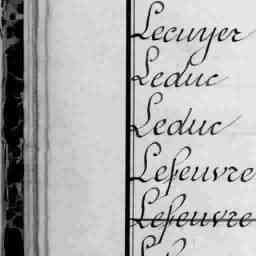 Lecuyer
Leduc
Leduc
Lefeuvre
Lefeuvre